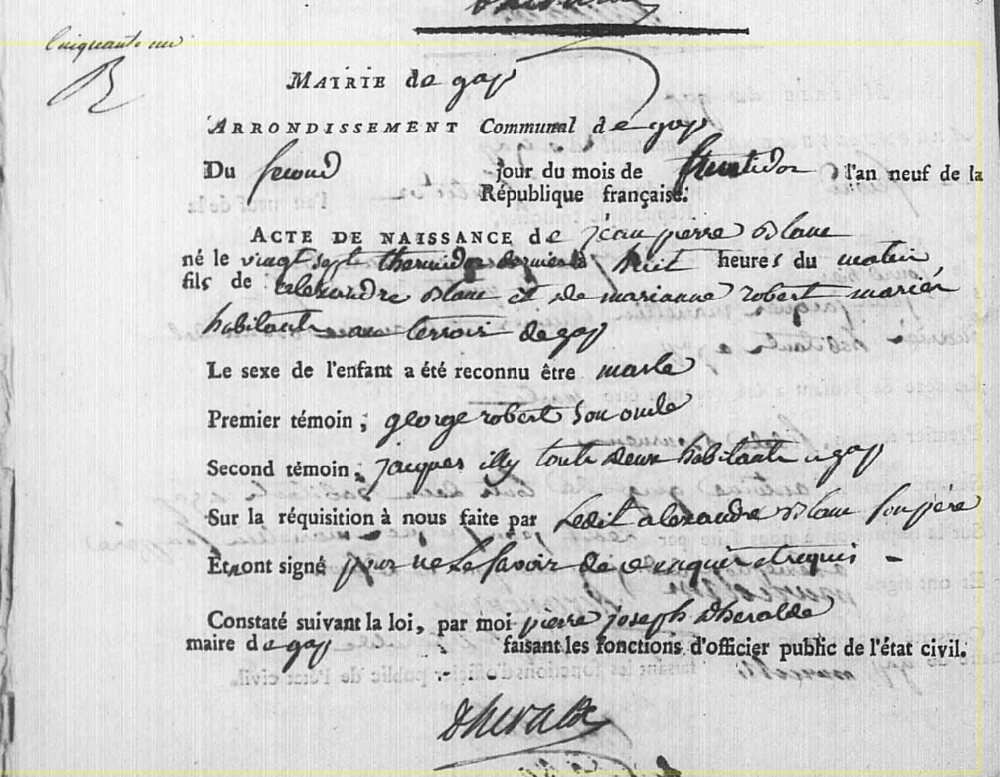 Cinquante un
MAIRIE de gap
ARRONDISSEMENT Communal de gap
Du second jour du mois de fructidor l'an neuf de la
République française.
ACTE DE NAISSANCE de jean pierre Blanc
né le vingt sept thermidor dernier à huit heures du matin
fils de alexandre Blanc et de marianne robert mariés
habitants au terroir de gap
Le sexe de l'enfant a été reconnu être masle
Premier témoin ; george robert son oncle
Second témoin ; jacques illy touts deux habitants a gap
Sur la réquisition à nous faite par Ledit alexandre Blanc son père
Et ont signé pour ne le savoir de ce enquis et requis -
Constaté suivant la loi, par moi pierre joseph Dheralde
maire de gap faisant les fonctions d'officier public de l'état civil.
Dheralde